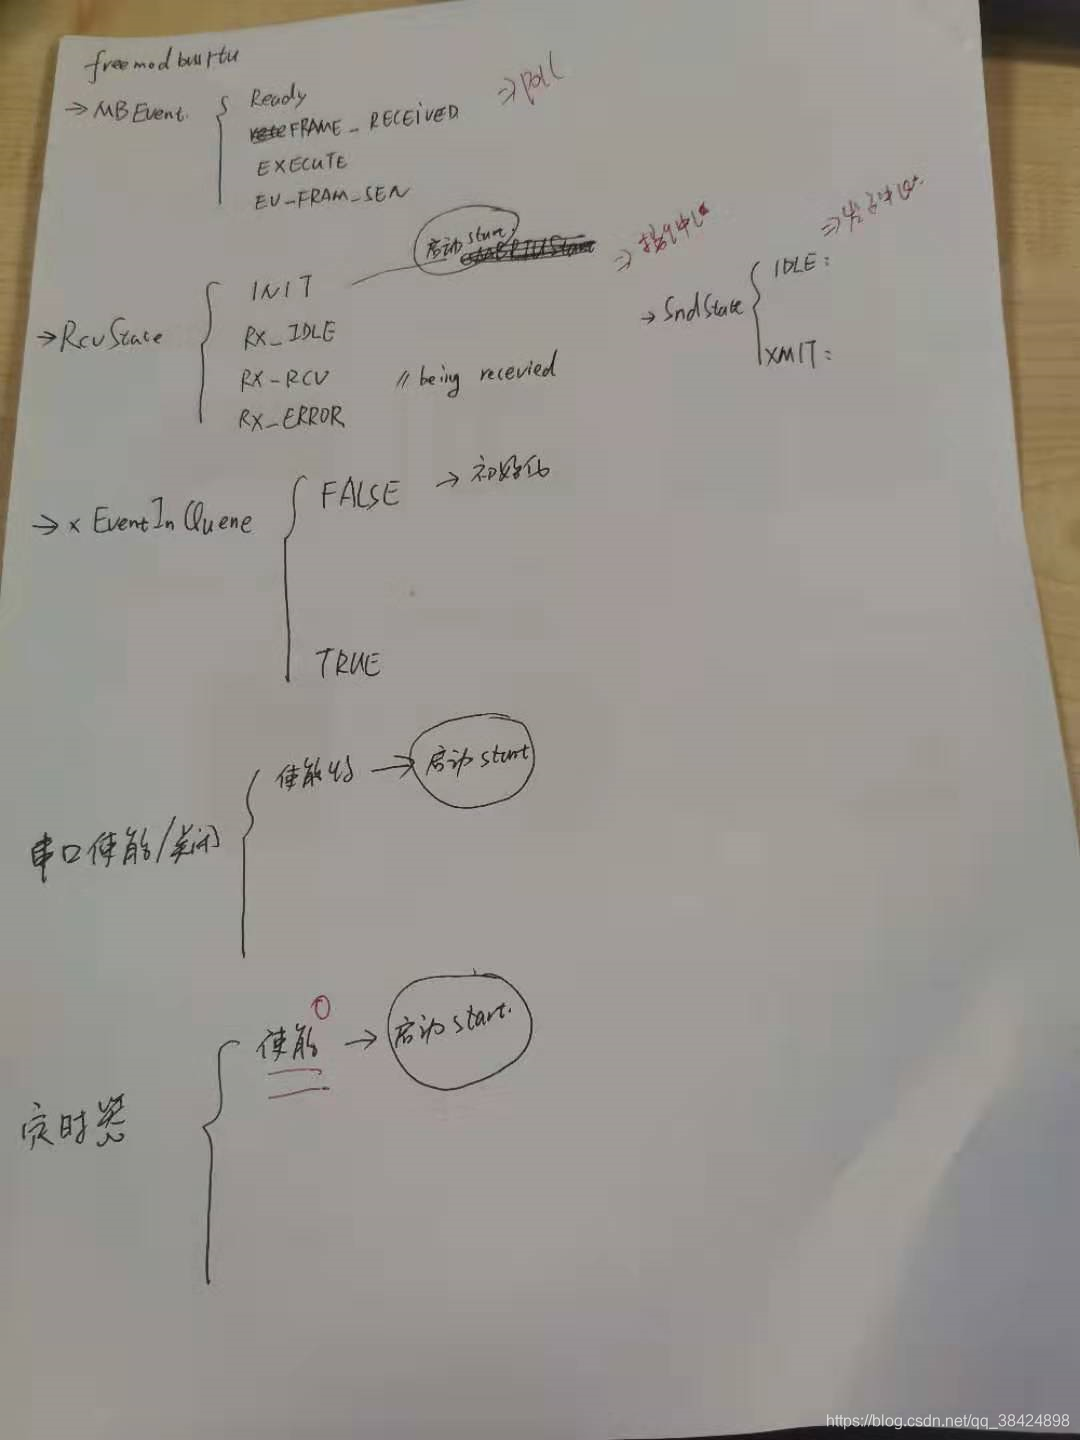 freemodbusrtu
→ MBEvent. Ready ⇒ poll
FRAME_RECEIVED
EXECUTE
EV_FRAM_SEN
→ RcvState INIT 启动 start.
RX_IDLE
RX_RCV // being recevied
RX_ERROR
→ SndState IDLE:
XMIT:
→ xEventInQuene FALSE → 初始化
TRUE
串口使能/关闭 使能 → 启动 start
定时器 使能 → 启动 start.
https://blog.csdn.net/qq_38424898